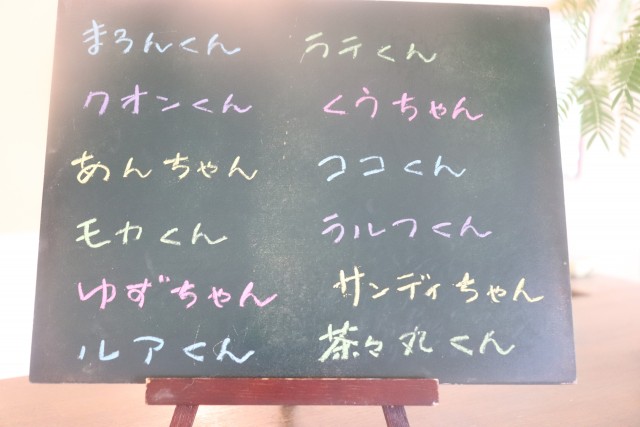 まろんくん
ラテくん
クオンくん
くうちゃん
あんちゃん
ココくん
モカくん
ラルフくん
ゆずちゃん
サンディちゃん
ルアくん
茶々丸くん